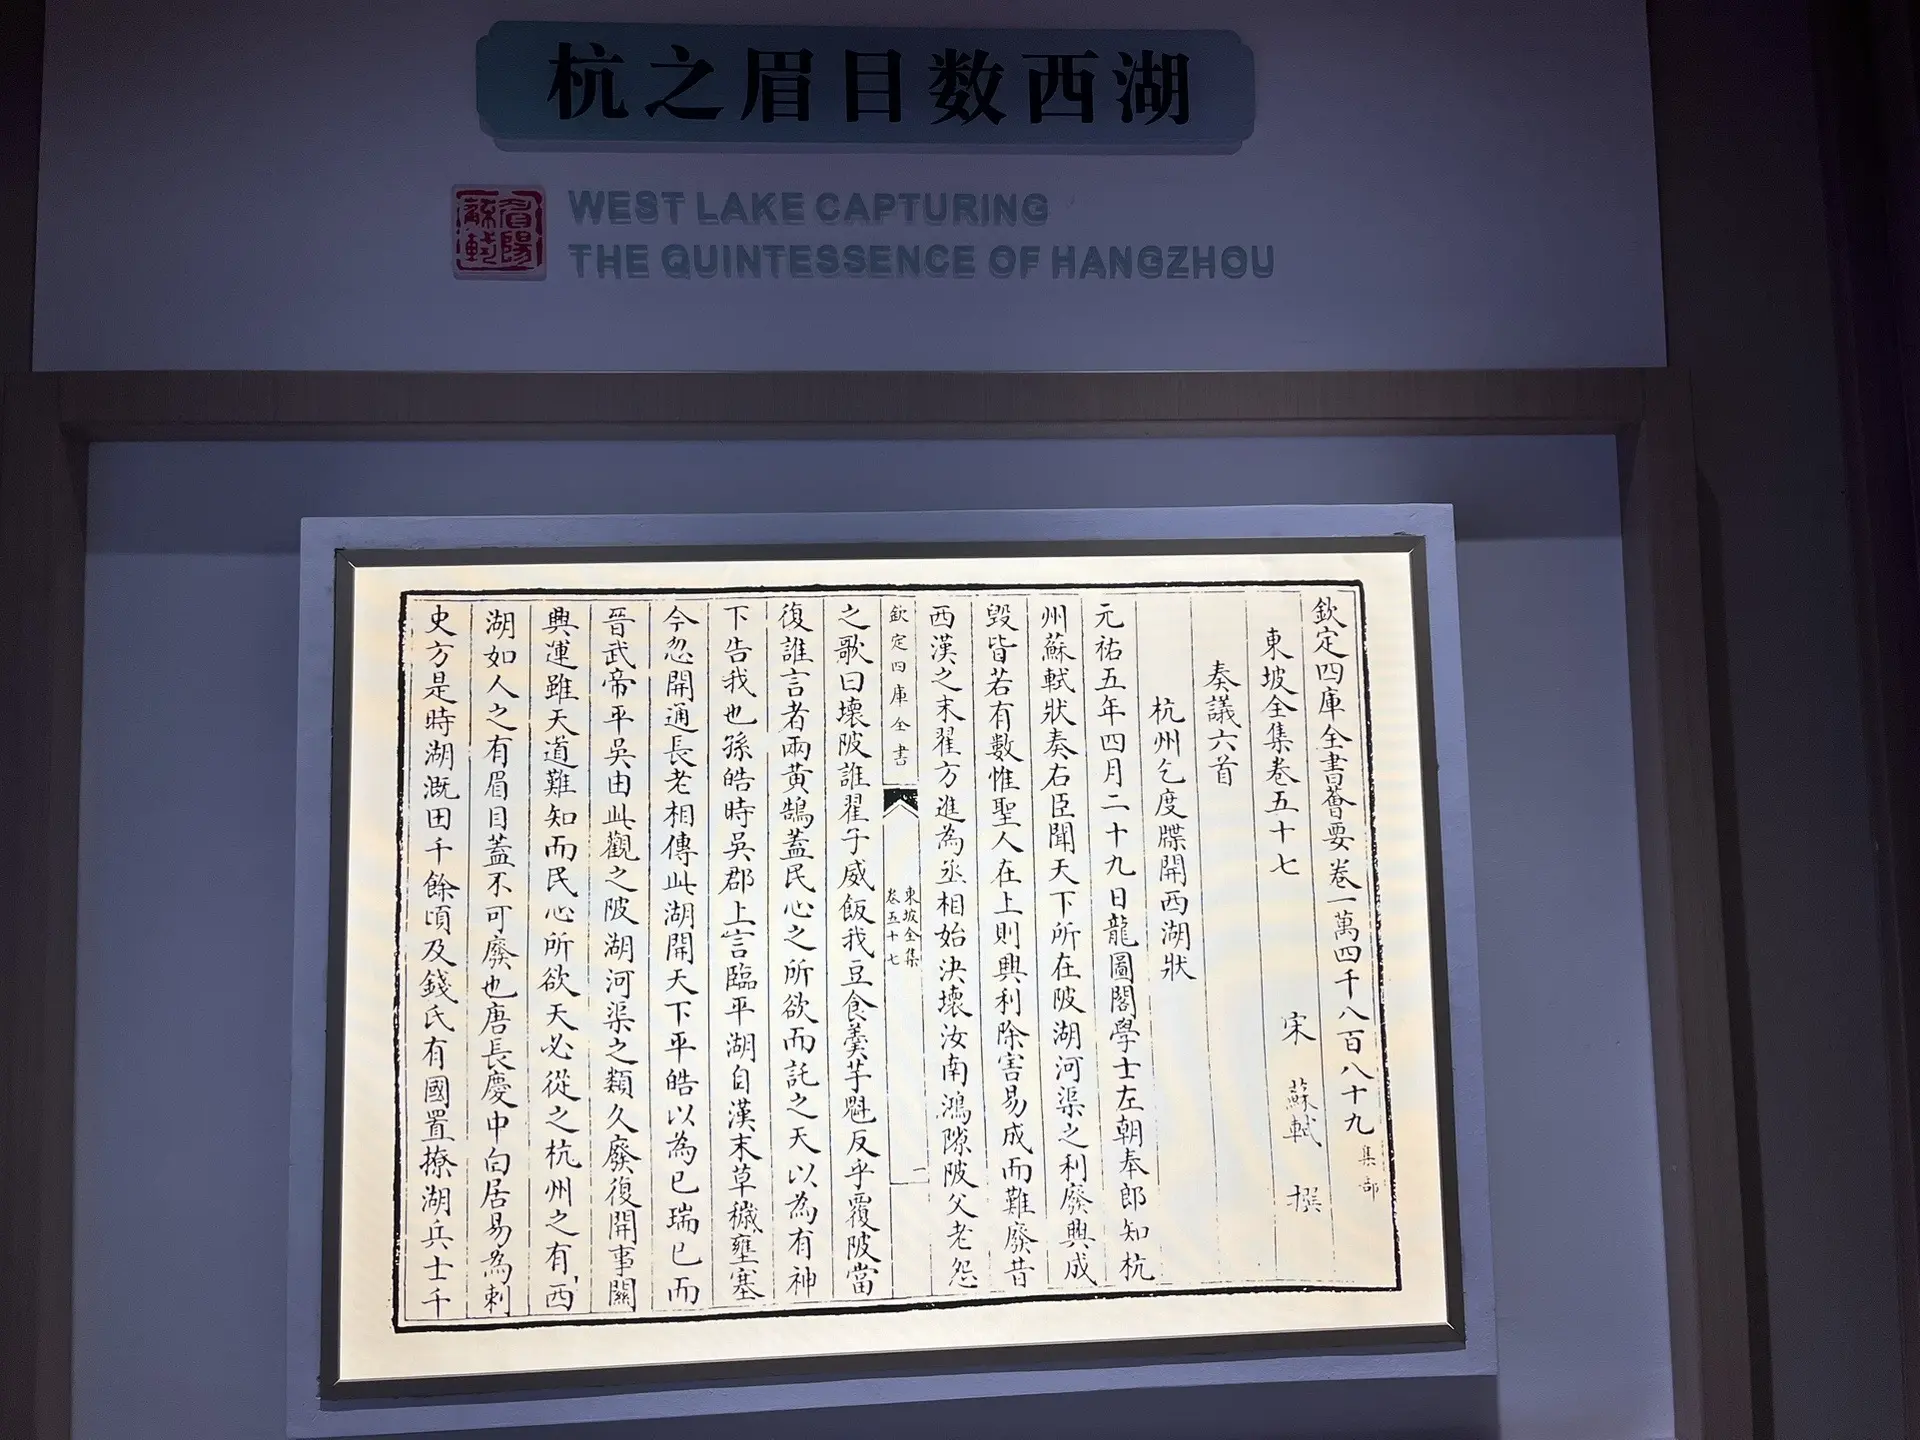 杭之眉目数西湖
眉陽
蘇軾
WEST LAKE CAPTURING
THE QUINTESSENCE OF HANGZHOU
欽定四庫全書薈要卷一萬四千八百八十九 集部
東坡全集卷五十七 宋 蘇軾 撰
奏議六首
杭州乞度牒開西湖狀
元祐五年四月二十九日龍圖閣學士左朝奉郎知杭
州蘇軾狀奏右臣聞天下所在陂湖河渠之利廢興成
毀皆若有數惟聖人在上則興利除害易成而難廢昔
西漢之末翟方進為丞相始決壞汝南鴻隙陂父老怨
欽定四庫全書
東坡全集
卷五十七
一
之歌曰壞陂誰翟子威飯我豆食羹芋魁反乎覆陂當
復誰言者兩黃鵠蓋民心之所欲而託之天以為有神
下告我也孫皓時吳郡上言臨平湖自漢末草穢壅塞
今忽開通長老相傳此湖開天下平皓以為已瑞已而
晉武帝平吳由此觀之陂湖河渠之類久廢復開事關
興運雖天道難知而民心所欲天必從之杭州之有西
湖如人之有眉目蓋不可廢也唐長慶中白居易為刺
史方是時湖溉田千餘頃及錢氏有國置撩湖兵士千